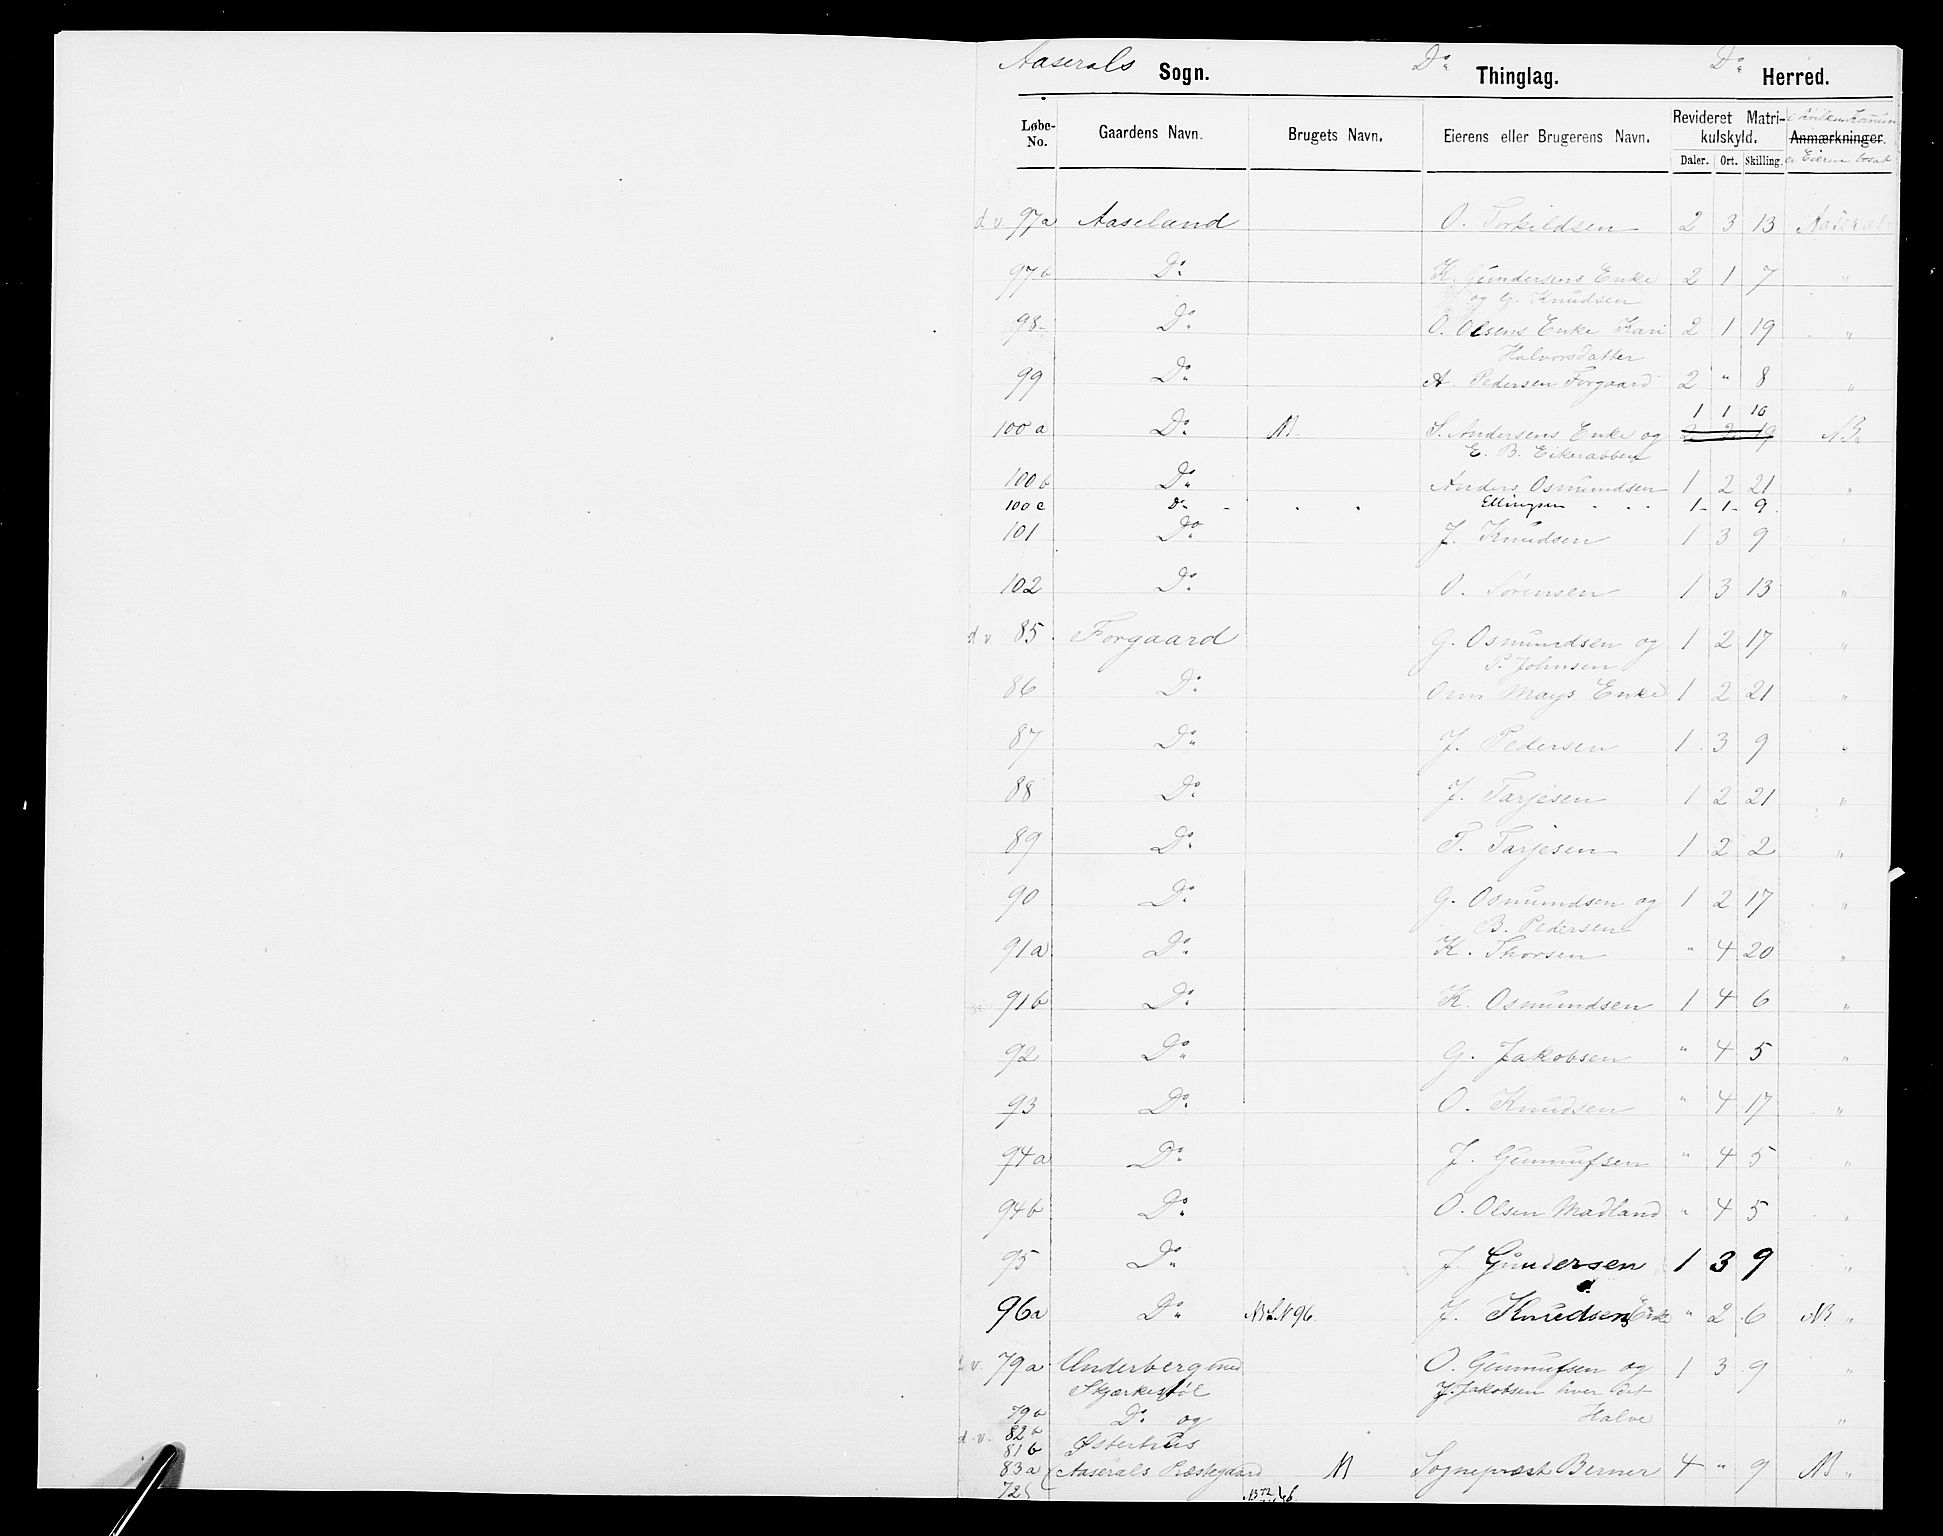 Aaserals Sogn. Do Thinglag. Do Herred.
Løbe-No. Gaardens Navn. Brugets Navn. Eierens eller Brugerens Navn. Revideret Matrikulskyld. Anmærkninger.
Daler. Ort. Skilling. er Eieren bosat
d v. 97a Aaseland O. Torkildsen 2 3 13 Aaseral
97b Do K. Gundersens Enke 2 1 7 "
og G. Knudsen
98 Do O. Olsens Enke Kari 2 1 19 "
Halvorsdatter
99 Do A. Pedersen Forgaard 2 " 8 "
1 1 10
100a Do NB. S. Andersens Enke og 2 2 19 NB
E. B. Eikerabben
100b Do Anders Osmundsen 1 2 21 "
100c Do Ellingsen 1 1 9
101 Do J. Knudsen 1 3 9 "
102 Do O. Sørensen 1 3 13 "
d v 85 Forgaard G. Osmundsen og 1 2 17 "
P. Johnsen
86 Do Orm Mays Enke 1 2 21 "
87 Do J. Pedersen 1 3 9 "
88 Do J. Tarjesen 1 2 21 "
89 Do T. Tarjesen 1 2 2 "
90 Do G. Osmundsen og 1 2 17 "
B. Pedersen
91a Do K. Thorsen " 4 20 "
91b Do K. Osmundsen 1 4 6 "
92 Do G. Jakobsen " 4 5 "
93 Do O. Knudsen " 4 17 "
94a Do J. Gunnufsen " 4 5 "
94b Do O. Olsen Madland " 4 5 "
95 Do J. Gundersen 1 3 9 "
96a Do J. Knudsens Enke " 2 6 NB "
d v. 79a Underberg med O. Gunnufsen og 1 3 9 "
Skjærkestøl J. Jakobsen hver det
79b Do og Halve "
d. v. 82b
81b Østerhus
83a Aaserals Præstegaard NB Sogneprest Berner 4 " 9 NB "
72